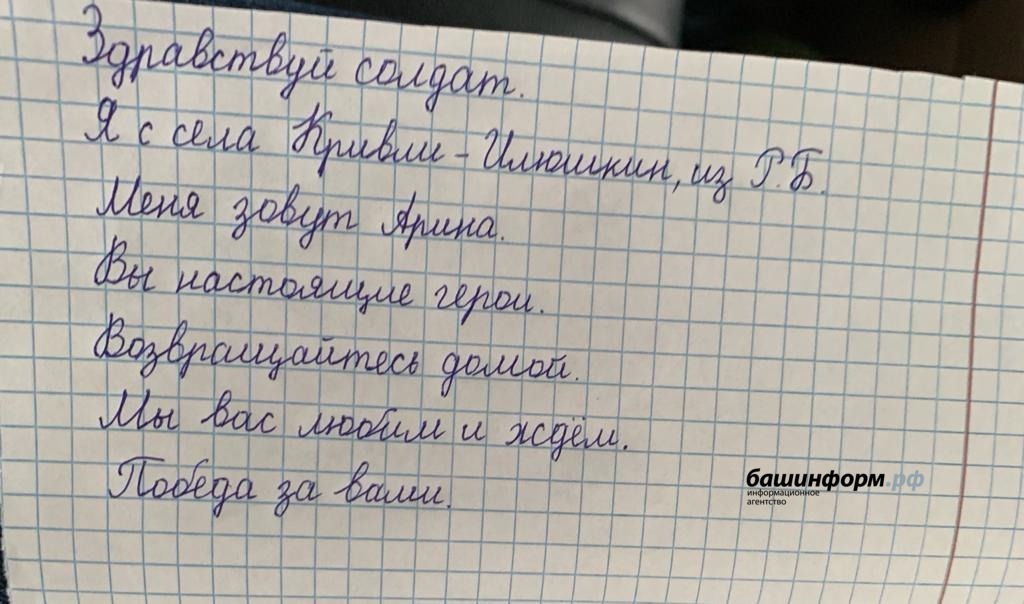 Здравствуй солдат.
Я с села Кривли-Илюшкин, из Р.Б.
Меня зовут Арина.
Вы настоящие герои.
Возвращайтесь домой.
Мы вас любим и ждём.
Победа за вами.
башинформ.рф
информационное
агентство